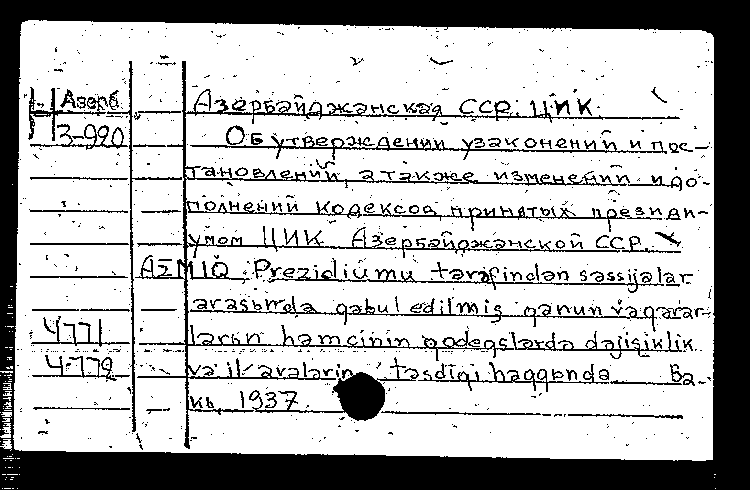 Азерб. Азербайджанская ССР. ЦИК.
3-990 Об утверждении узаконений и пос-
тановлений, а также изменений и до-
полнений кодексов, принятых президи-
умом ЦИК Азербайджанской ССР.
ASMIQ Prezidiumu tərəfindən sessijalar
arasьnda qəbul edilmiş qanun və qərar-
4771 larьn həmcinin qodeqslərdə dəjişiklik
4772 və ilavələrin təsdiqi haqqьnda Ba-
kь, 1937.